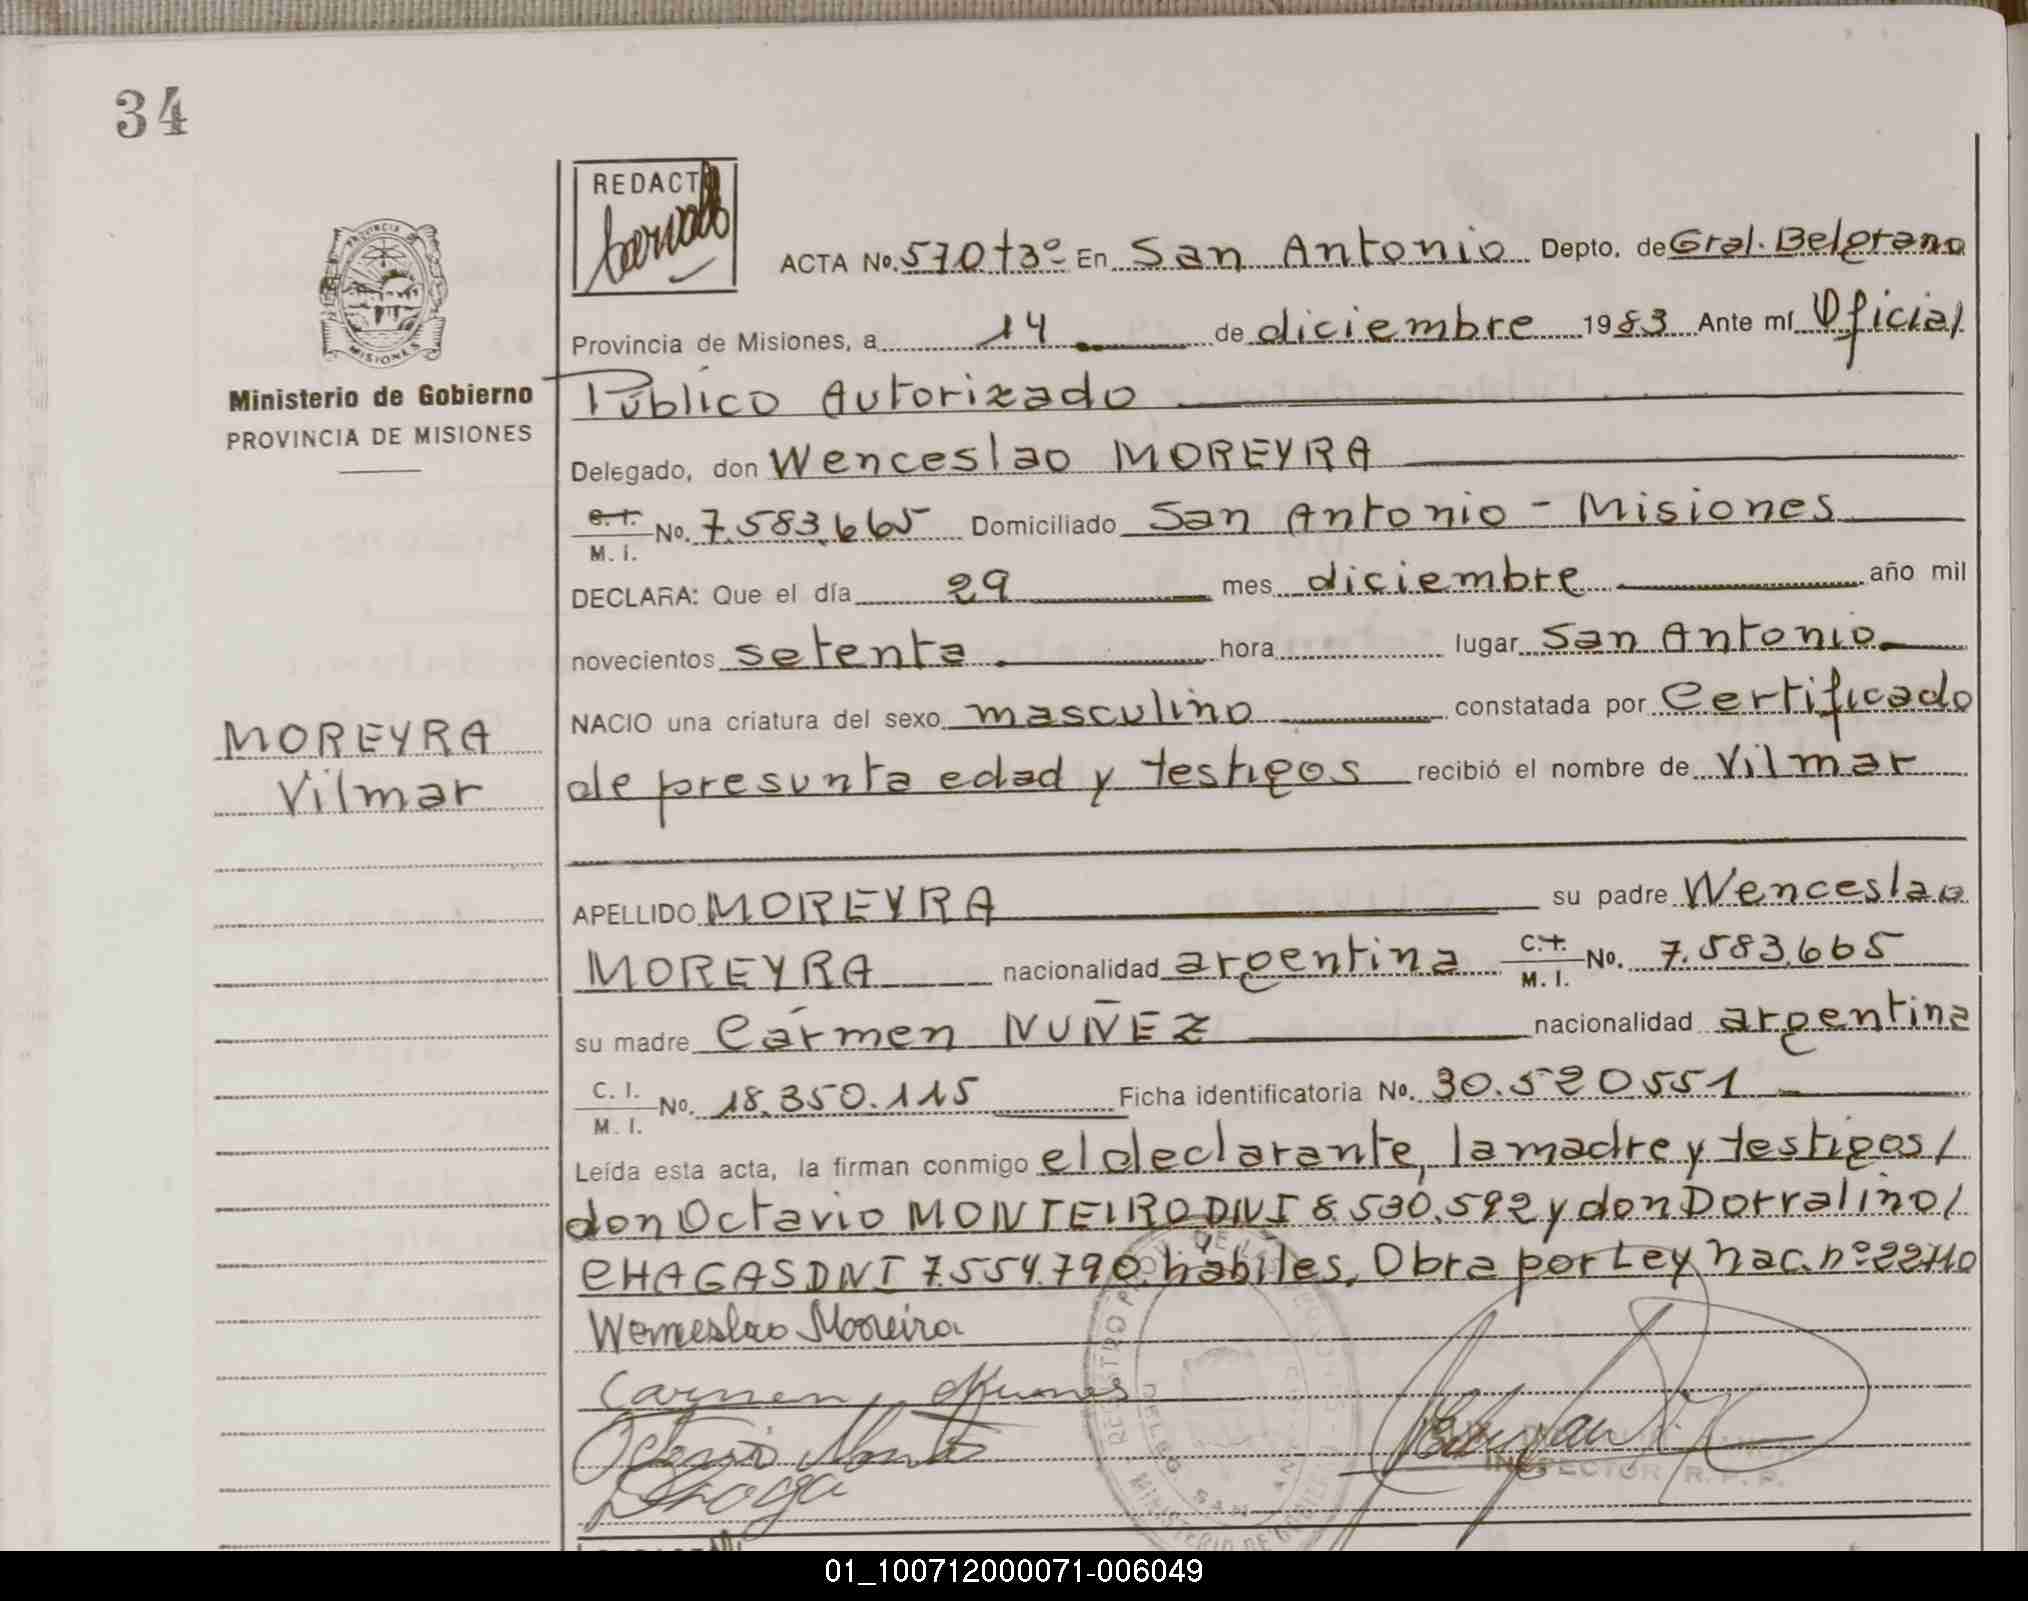 34
REDACT
ACTA No. 570 tº3º En San Antonio Depto. de Gral. Belgrano
Provincia de Misiones, a 14 de diciembre 1983 Ante mí Oficial
Público Autorizado
Ministerio de Gobierno
PROVINCIA DE MISIONES
Delegado, don Wenceslao MOREYRA
C. I. M. I. No. 7.583.665 Domiciliado San Antonio - Misiones
DECLARA: Que el día 29 mes diciembre año mil
novecientos setenta hora lugar San Antonio
NACIO una criatura del sexo masculino constatada por Certificado
MOREYRA
Vilmar
de presunta edad y testigos recibió el nombre de Vilmar
APELLIDO MOREYRA su padre Wenceslao
MOREYRA nacionalidad argentina C. I. M. I. No. 7.583.665
su madre Cármen NUÑEZ nacionalidad argentina
C. I. M. I. No. 18.350.115 Ficha identificatoria No. 30.520.551
Leída esta acta, la firman conmigo el declarante, la madre y testigos/
don Octavio MONTEIRO DNI 8.530.592 y don Dorralino/
CHAGAS DNI 7.554.790 hábiles, Obra por Ley nac. nº 22410
Wenceslao Moreira
Carmen
Octavio
INSPECTOR R. P. P.
01_100712000071-006049